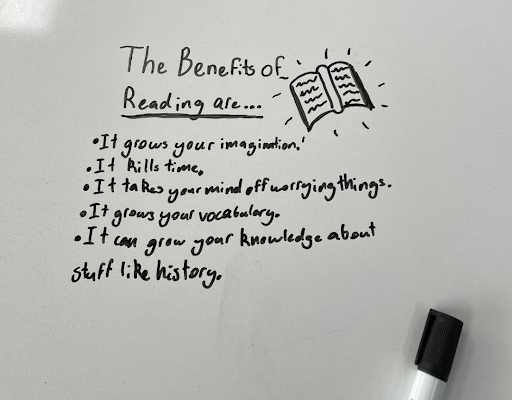 The Benefits of
Reading are...
•It grows your imagination.
•It kills time.
•It takes your mind off worrying things.
•It grows your vocabulary.
•It can grow your knowledge about
stuff like history.